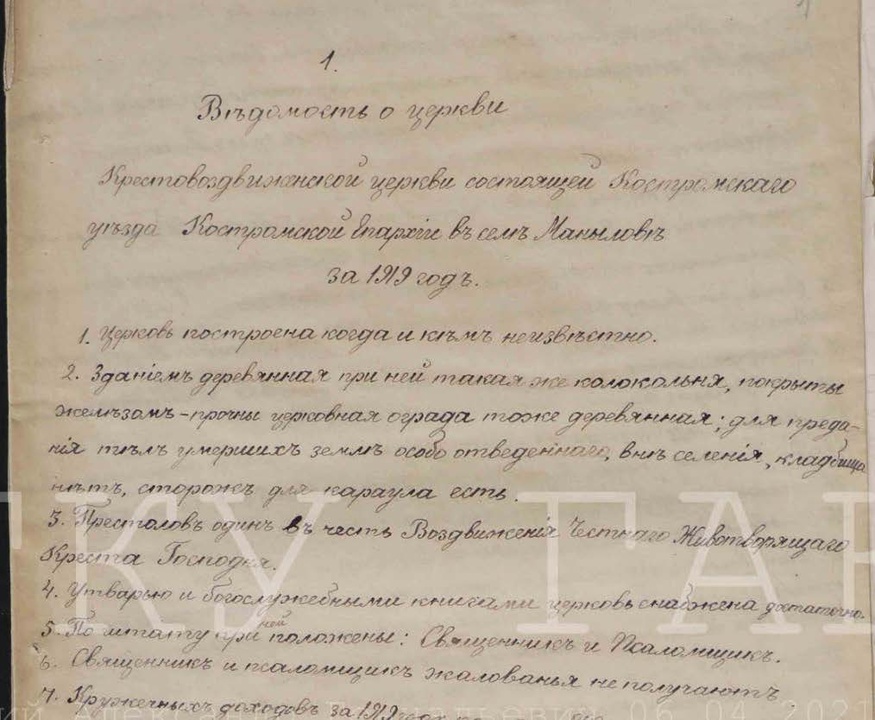 1.
Вѣдомость о церкви
Крестовоздвиженской церкви состоящей Костромскаго
уѣзда Костромской Епархіи въ селѣ Маныловѣ
за 1919 годъ.
1. Церковь построена когда и кѣмъ неизвѣстно.
2. Зданіемъ деревянная при ней такая же колокольня, покрыты
желѣзомъ – прочны церковная ограда тоже деревянная; для преда-
нія тѣлъ умершихъ землѣ особо отведеннаго, внѣ селенія, кладбища
нѣтъ, сторожъ для караула есть.
3. Престоловъ одинъ въ честь Воздвиженія Честнаго Животворящаго
Креста Господня.
4. Утварью и богослужебными книгами церковь снабжена достаточно.
5. По штату при ней положены: Священникъ и Псаломщикъ.
6. Священникъ и псаломщикъ жалованья не получаютъ
7. Кружечныхъ доходовъ за 1919